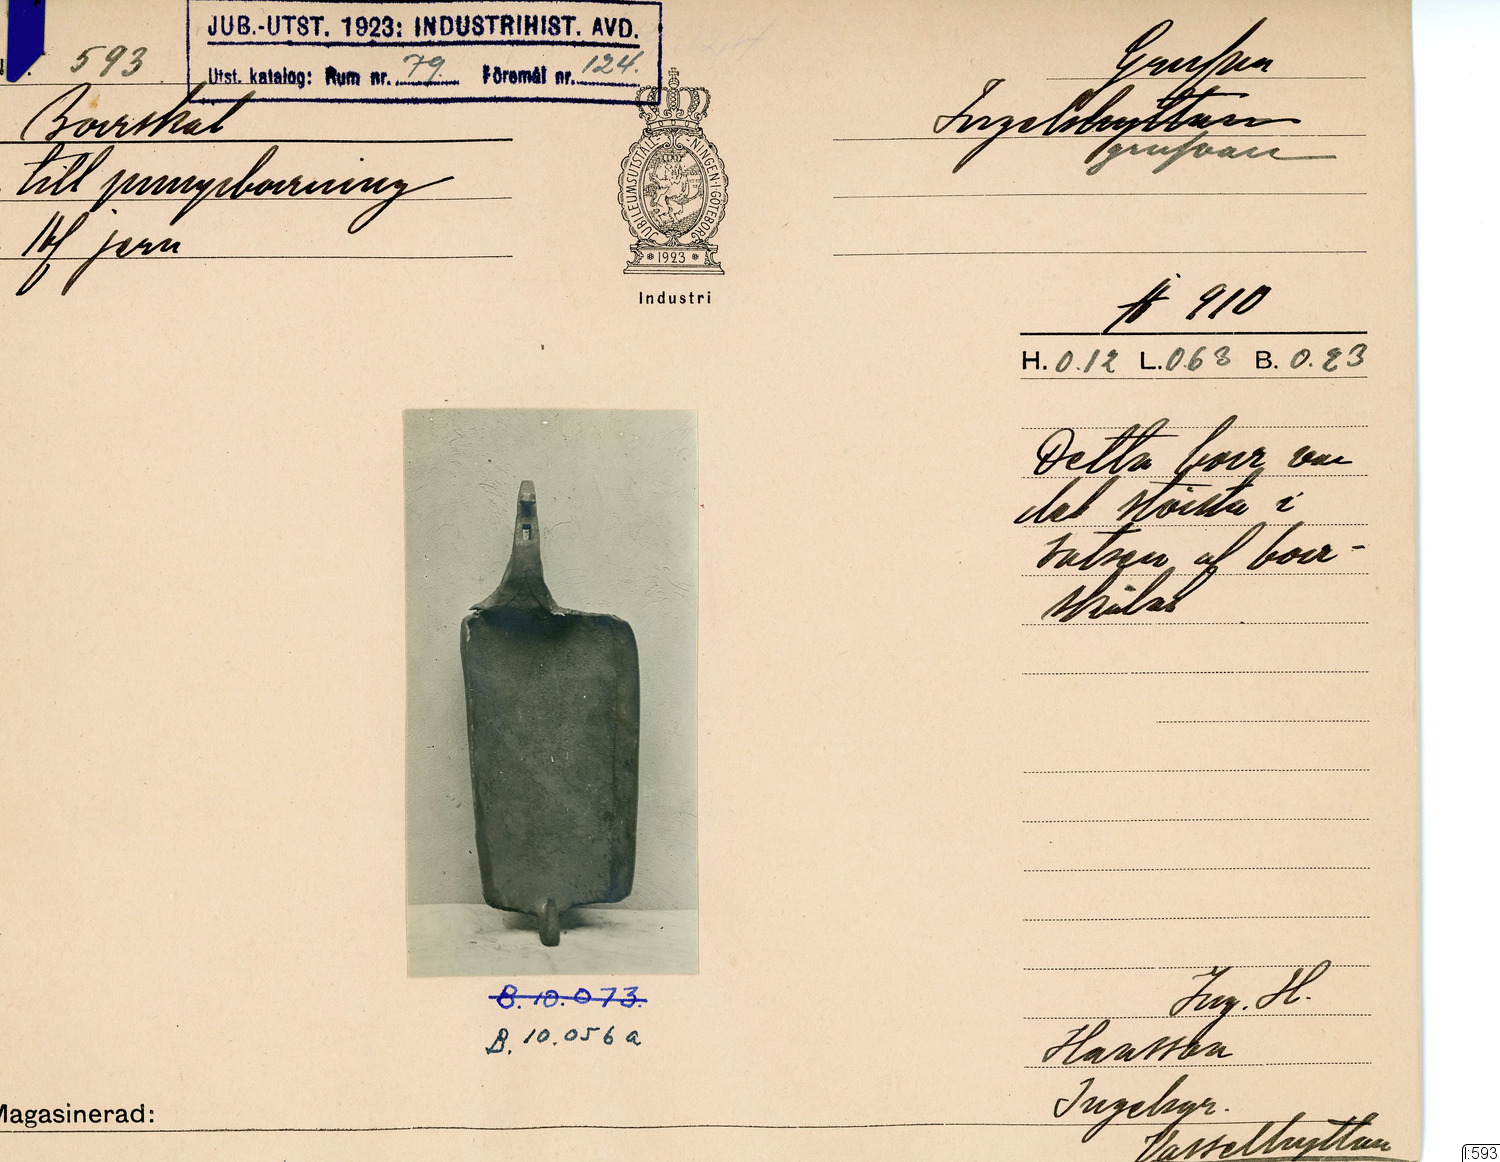 JUB.-UTST. 1923: INDUSTRIHIST. AVD.
Utst. katalog: Rum nr. 79. Föremål nr. 124.
593
Borrskål
till pumpborrning
Af jern
Grufva
Ingelshyttan
grufvan
JUBILEUMSUTSTÄLLNINGEN I GÖTEBORG
1923
Industri
# 910
H. 0.12 L. 0.63 B. 0.23
Detta borr var
det största i
satsen af borr-
skålar
B.10.073.
B.10.056 a
Ing. H.
Hansson
Ingelsgr.
Vasselhyttan
Magasinerad:
I:593